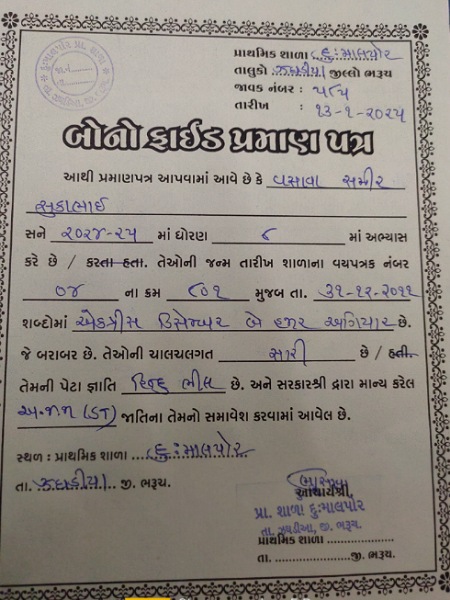 પ્રાથમિક શાળા દુઃમાલપોર
તાલુકો ઝઘડીયા જીલ્લો ભરૂચ
જાવક નંબર : ૫૮/૫
તારીખ : ૧૩-૧-૨૦૨૫
બોનોફાઈડ પ્રમાણ પત્ર
આથી પ્રમાણપત્ર આપવામાં આવે છે કે વસાવા સમીર
સુકાભાઈ
સને ૨૦૨૪-૨૫ માં ધોરણ ૮ માં અભ્યાસ
કરે છે / કરતા હતા. તેઓની જન્મ તારીખ શાળાના વયપત્રક નંબર
૦૪ ના ક્રમ ૮૦૧ મુજબ તા. ૩૧-૧૨-૨૦૧૧
શબ્દોમાં એકત્રીસ ડિસેમ્બર બે હજાર અગિયાર છે.
જે બરાબર છે. તેઓની ચાલચલગત સારી છે / હતી.
તેમની પેટા જ્ઞાતિ હિન્દુ ભીલ છે. અને સરકારશ્રી દ્વારા માન્ય કરેલ
અ.જ.જા (ST) જાતિના તેમનો સમાવેશ કરવામાં આવેલ છે.
સ્થળ : પ્રાથમિક શાળા દુઃમાલપોર
તા. ઝઘડીયા જી. ભરૂચ.
આચાર્યશ્રી,
પ્રા. શાળા દુઃમાલપોર
તા. ઝઘડીઆ, જી. ભરૂચ.
પ્રાથમિક શાળા ....................
તા. .................... જી. ભરૂચ.